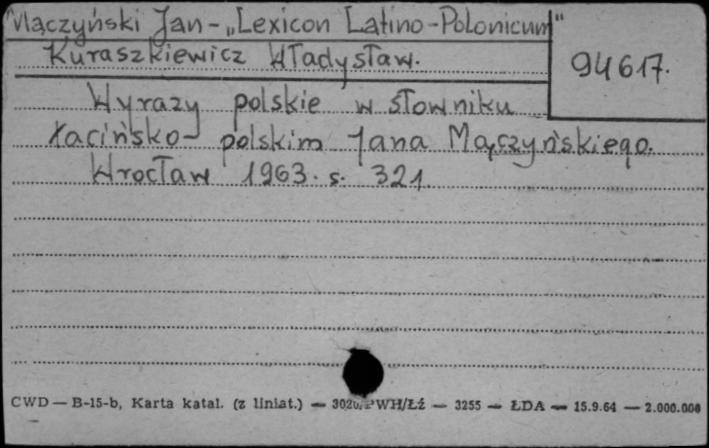 Mączyński Jan - „Lexicon Latino-Polonicum"
Kuraszkiewicz Władysław.
94617.
Wyrazy polskie w słowniku
łacińsko-polskim Jana Mączyńskiego.
Wrocław 1963. s. 321.
CWD — B-15-b, Karta katal. (z liniat.) — WH/Łź — 3255 — ŁDA — 15.9.64 — 2.000.000